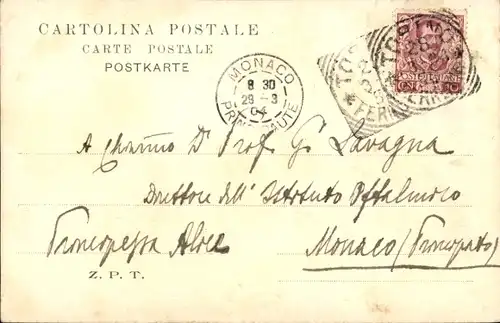 CARTOLINA POSTALE
CARTE POSTALE
POSTKARTE
MONACO
8 30
29-3
04
PRINCIPAUTE
TORINO
FERR
POSTE ITALIANE
A Chiarmo Dr Prof. G. Lavagna
Direttore dell' Istituto Oftalmico
Principessa Alice
Monaco (Principato)
Z. P. T.